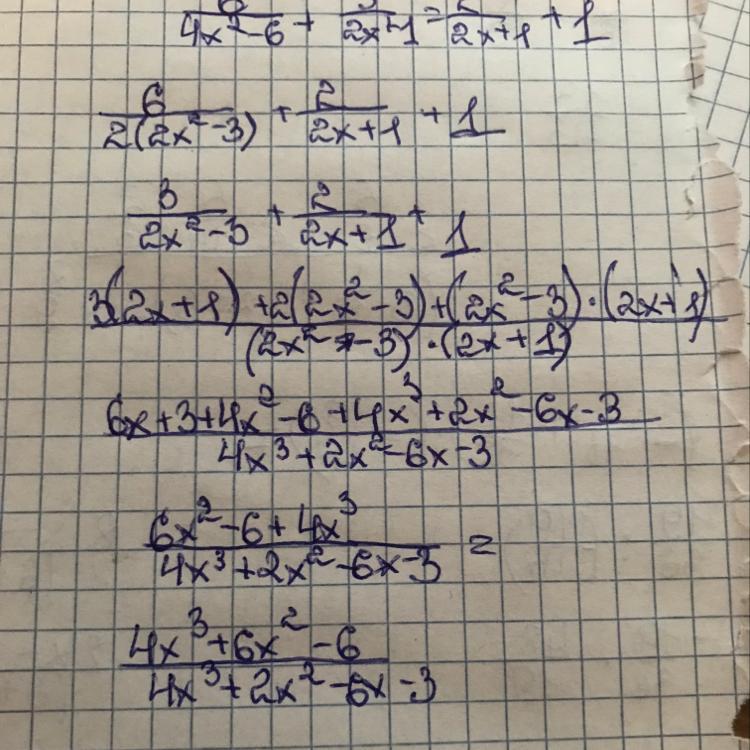 6/(4x²-6) + /(2x+1) = 2/(2x+1) + 1
6/(2(2x²-3)) + 2/(2x+1) + 1
3/(2x²-3) + 2/(2x+1) + 1
(3(2x+1)+2(2x²-3)+(2x²-3)·(2x+1))/((2x²-3)·(2x+1))
(6x+3+4x²-6+4x³+2x²-6x-3)/(4x³+2x²-6x-3)
(6x²-6+4x³)/(4x³+2x²-6x-3) =
(4x³+6x²-6)/(4x³+2x²-6x-3)